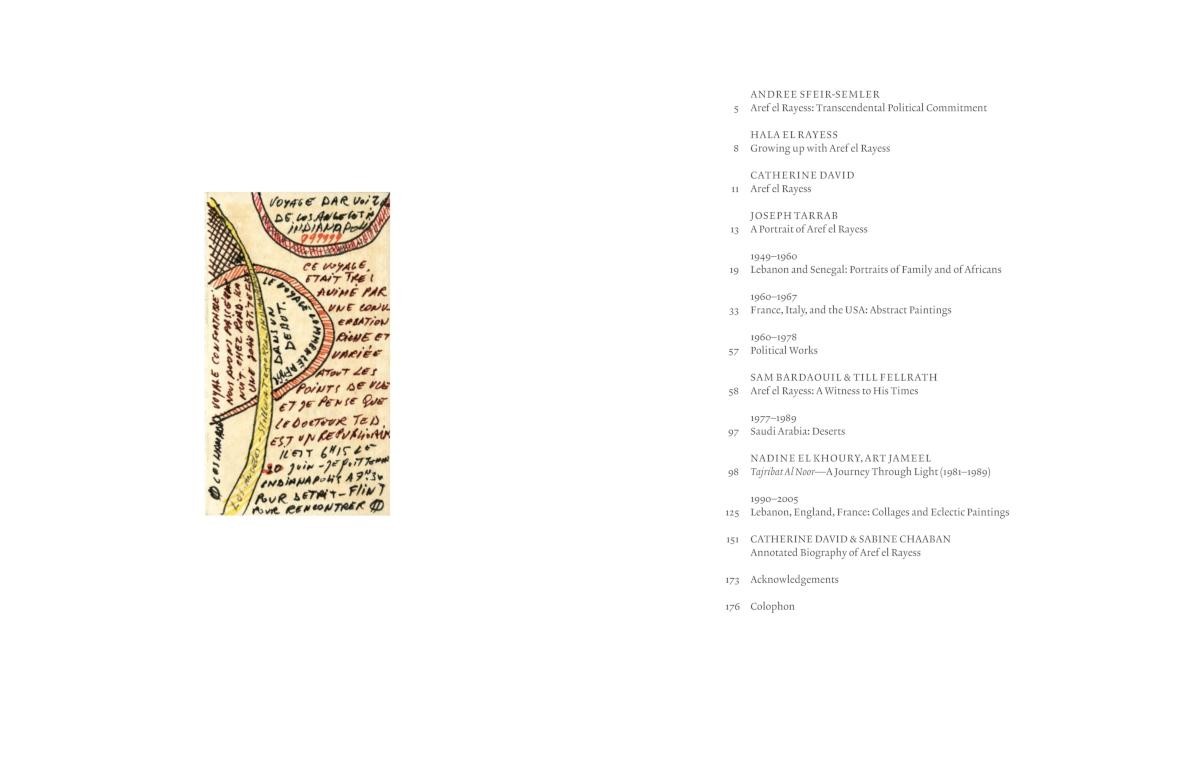 VOYAGE PAR
DE LOS
INDIANAPOLIS
CE VOYAGE
ETAIT TRES
ANIMÉ PAR
UNE CONV
ERSATION
RICHE ET
VARIÉE
ATOUT LES
POINTS DE VUE
ET JE PENSE QUE
LE DOCTEUR TED
EST UN REPUBLICAIN
IL EST 6H15 LE
30 JUIN
INDIANAPOLIS A
POUR DETROIT - FLINT
POUR RENCONTRER
LE VOYAGE COMMERCE
DANS UN
DEBUT.
VOYAGE CONFORTABLE
NOUS AVONS
ANDREE SFEIR-SEMLER
5 Aref el Rayess: Transcendental Political Commitment
HALA EL RAYESS
8 Growing up with Aref el Rayess
CATHERINE DAVID
11 Aref el Rayess
JOSEPH TARRAB
13 A Portrait of Aref el Rayess
1949–1960
19 Lebanon and Senegal: Portraits of Family and of Africans
1960–1967
33 France, Italy, and the USA: Abstract Paintings
1960–1978
57 Political Works
SAM BARDAOUIL & TILL FELLRATH
58 Aref el Rayess: A Witness to His Times
1977–1989
97 Saudi Arabia: Deserts
NADINE EL KHOURY, ART JAMEEL
98 Tajribat Al Noor—A Journey Through Light (1981–1989)
1990–2005
125 Lebanon, England, France: Collages and Eclectic Paintings
151 CATHERINE DAVID & SABINE CHAABAN
Annotated Biography of Aref el Rayess
173 Acknowledgements
176 Colophon